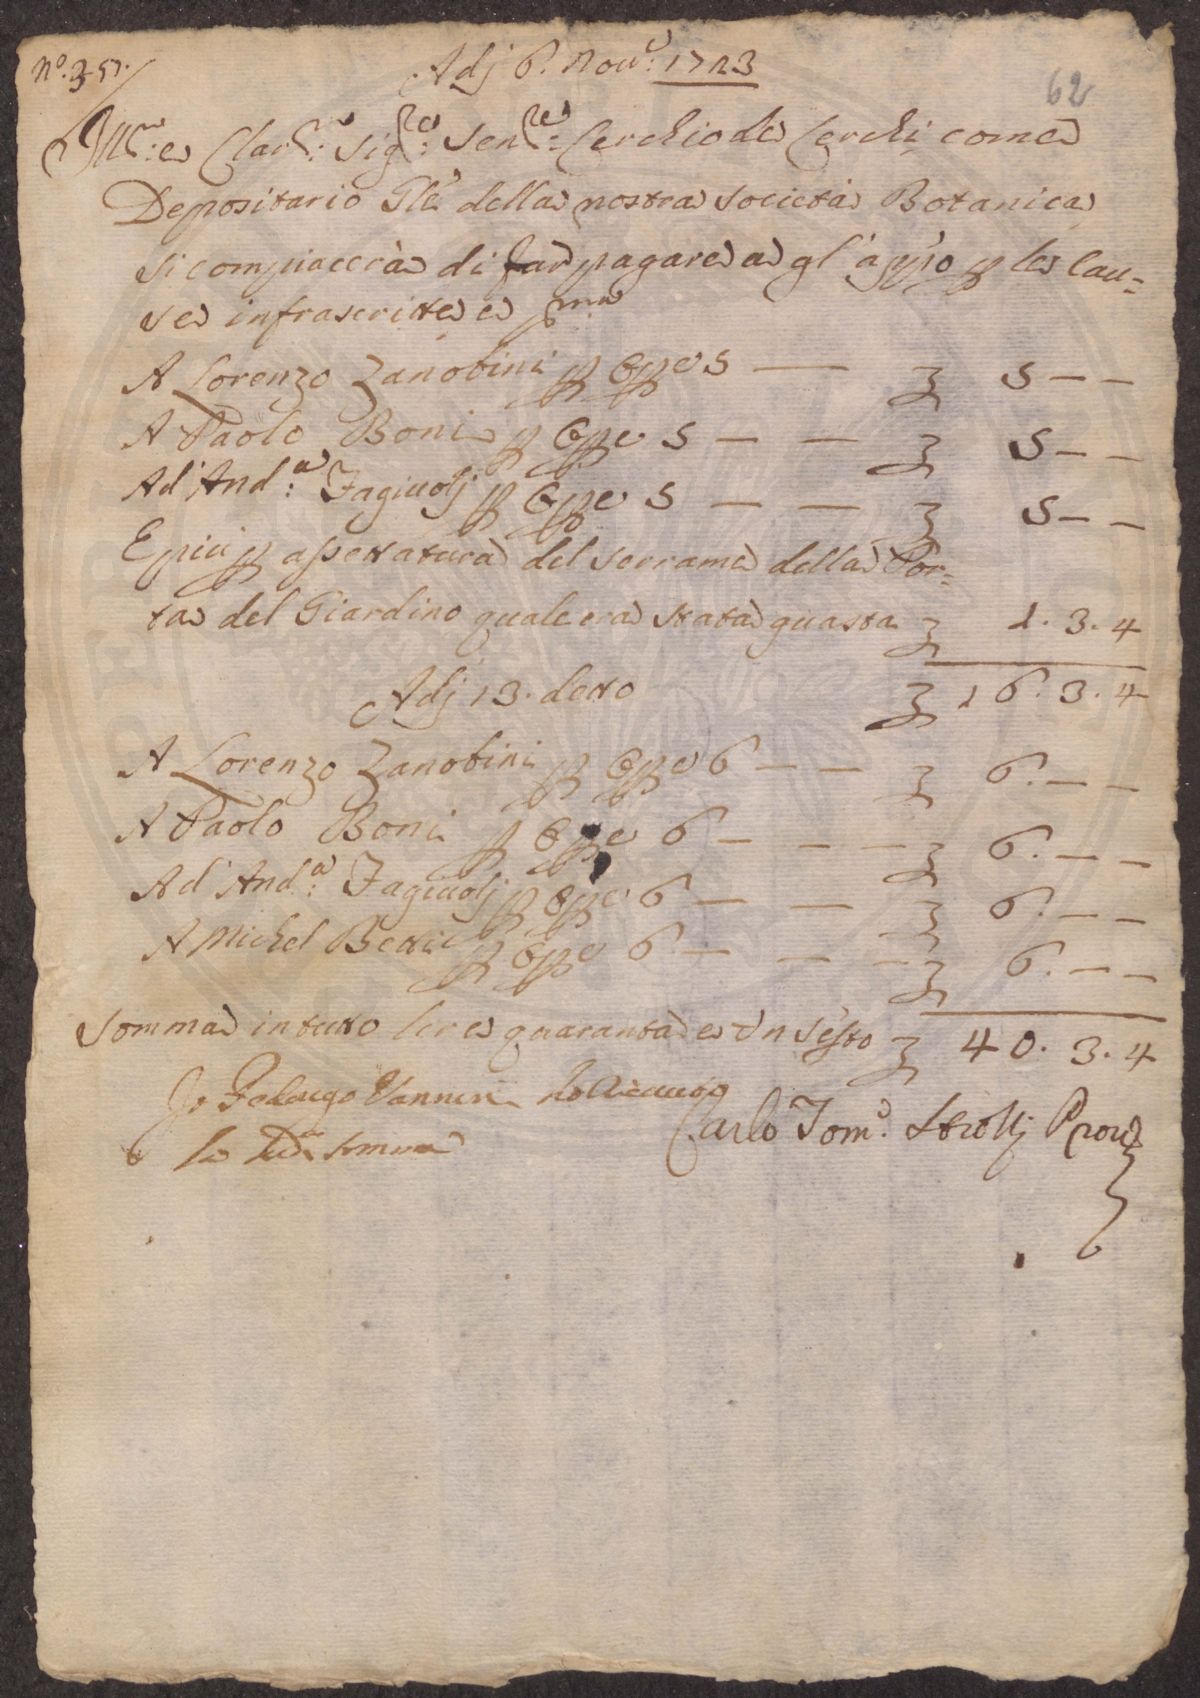 N.º 351.
Adj 6. Nou.e 1723
62
Ill.re e Clar.mo Sig.re Sen.re Cerchio de Cerchi come
Depositario Gle della nostra società Botanica
si compiacerà di far pagare a gl' appo p le cau=
se infrascritte e pma
A Lorenzo Zanobini p Gpe 5 — 5 — —
A Paolo Boni p Gpe 5 — — 5 — —
Ad And.a Fagiuolj p Gpe 5 — — 5 — —
E piu p assettatura del serrame della Por=
ta del Giardino quale era stata guasta 1. 3. 4
16. 3. 4
Adj 13. detto
A Lorenzo Zanobini p Gpe 6 — — 6. — —
A Paolo Boni p Gpe 6 — — — 6. — —
Ad And.a Fagiuolj p Gpe 6 — — 6. — —
A Michel Betti p Gpe 6. — — — 6. — —
Somma in tutto lire quaranta e Un sesto 40. 3. 4
Jo Vannini ho riceuuto
la somma
Carlo Tom.o Strozzj Prou.e